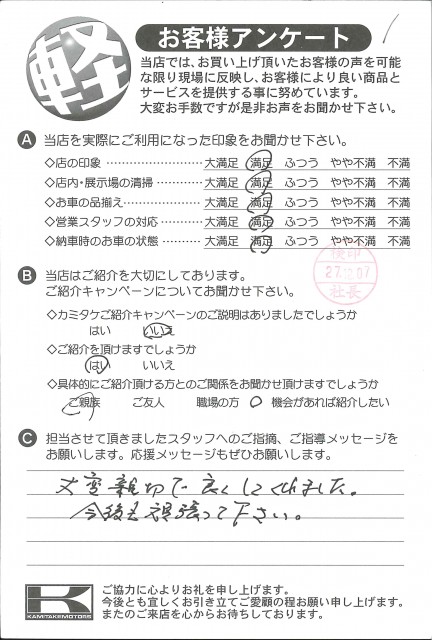 軽
お客様アンケート
当店では、お買い上げ頂いたお客様の声を可能
な限り現場に反映し、お客様により良い商品と
サービスを提供する事に努めています。
大変お手数ですが是非お声をお聞かせ下さい。
A 当店を実際にご利用になった印象をお聞かせ下さい。
◇店の印象 ………………… 大満足 満足 ふつう やや不満 不満
◇店内・展示場の清掃………… 大満足 満足 ふつう やや不満 不満
◇お車の品揃え……………… 大満足 満足 ふつう やや不満 不満
◇営業スタッフの対応 ……… 大満足 満足 ふつう やや不満 不満
◇納車時のお車の状態 ……… 大満足 満足 ふつう やや不満 不満
検印
27.12.07
社長
B 当店はご紹介を大切にしております。
ご紹介キャンペーンについてお聞かせ下さい。
◇カミタケご紹介キャンペーンのご説明はありましたでしょうか
はい いいえ
◇ご紹介を頂けますでしょうか
はい いいえ
◇具体的にご紹介頂ける方とのご関係をお聞かせ頂けますでしょうか
ご親族 ご友人 職場の方 機会があれば紹介したい
C 担当させて頂きましたスタッフへのご指摘、ご指導メッセージを
お願いします。応援メッセージもぜひお願いします。
大変親切で良くしてくれました。
今後も頑張って下さい。
K
KAMITAKEMOTORS
ご協力に心よりお礼を申し上げます。
今後とも宜しくお引き立てご愛顧の程お願い申し上げます。
またのご来店を心からお待ちしております。